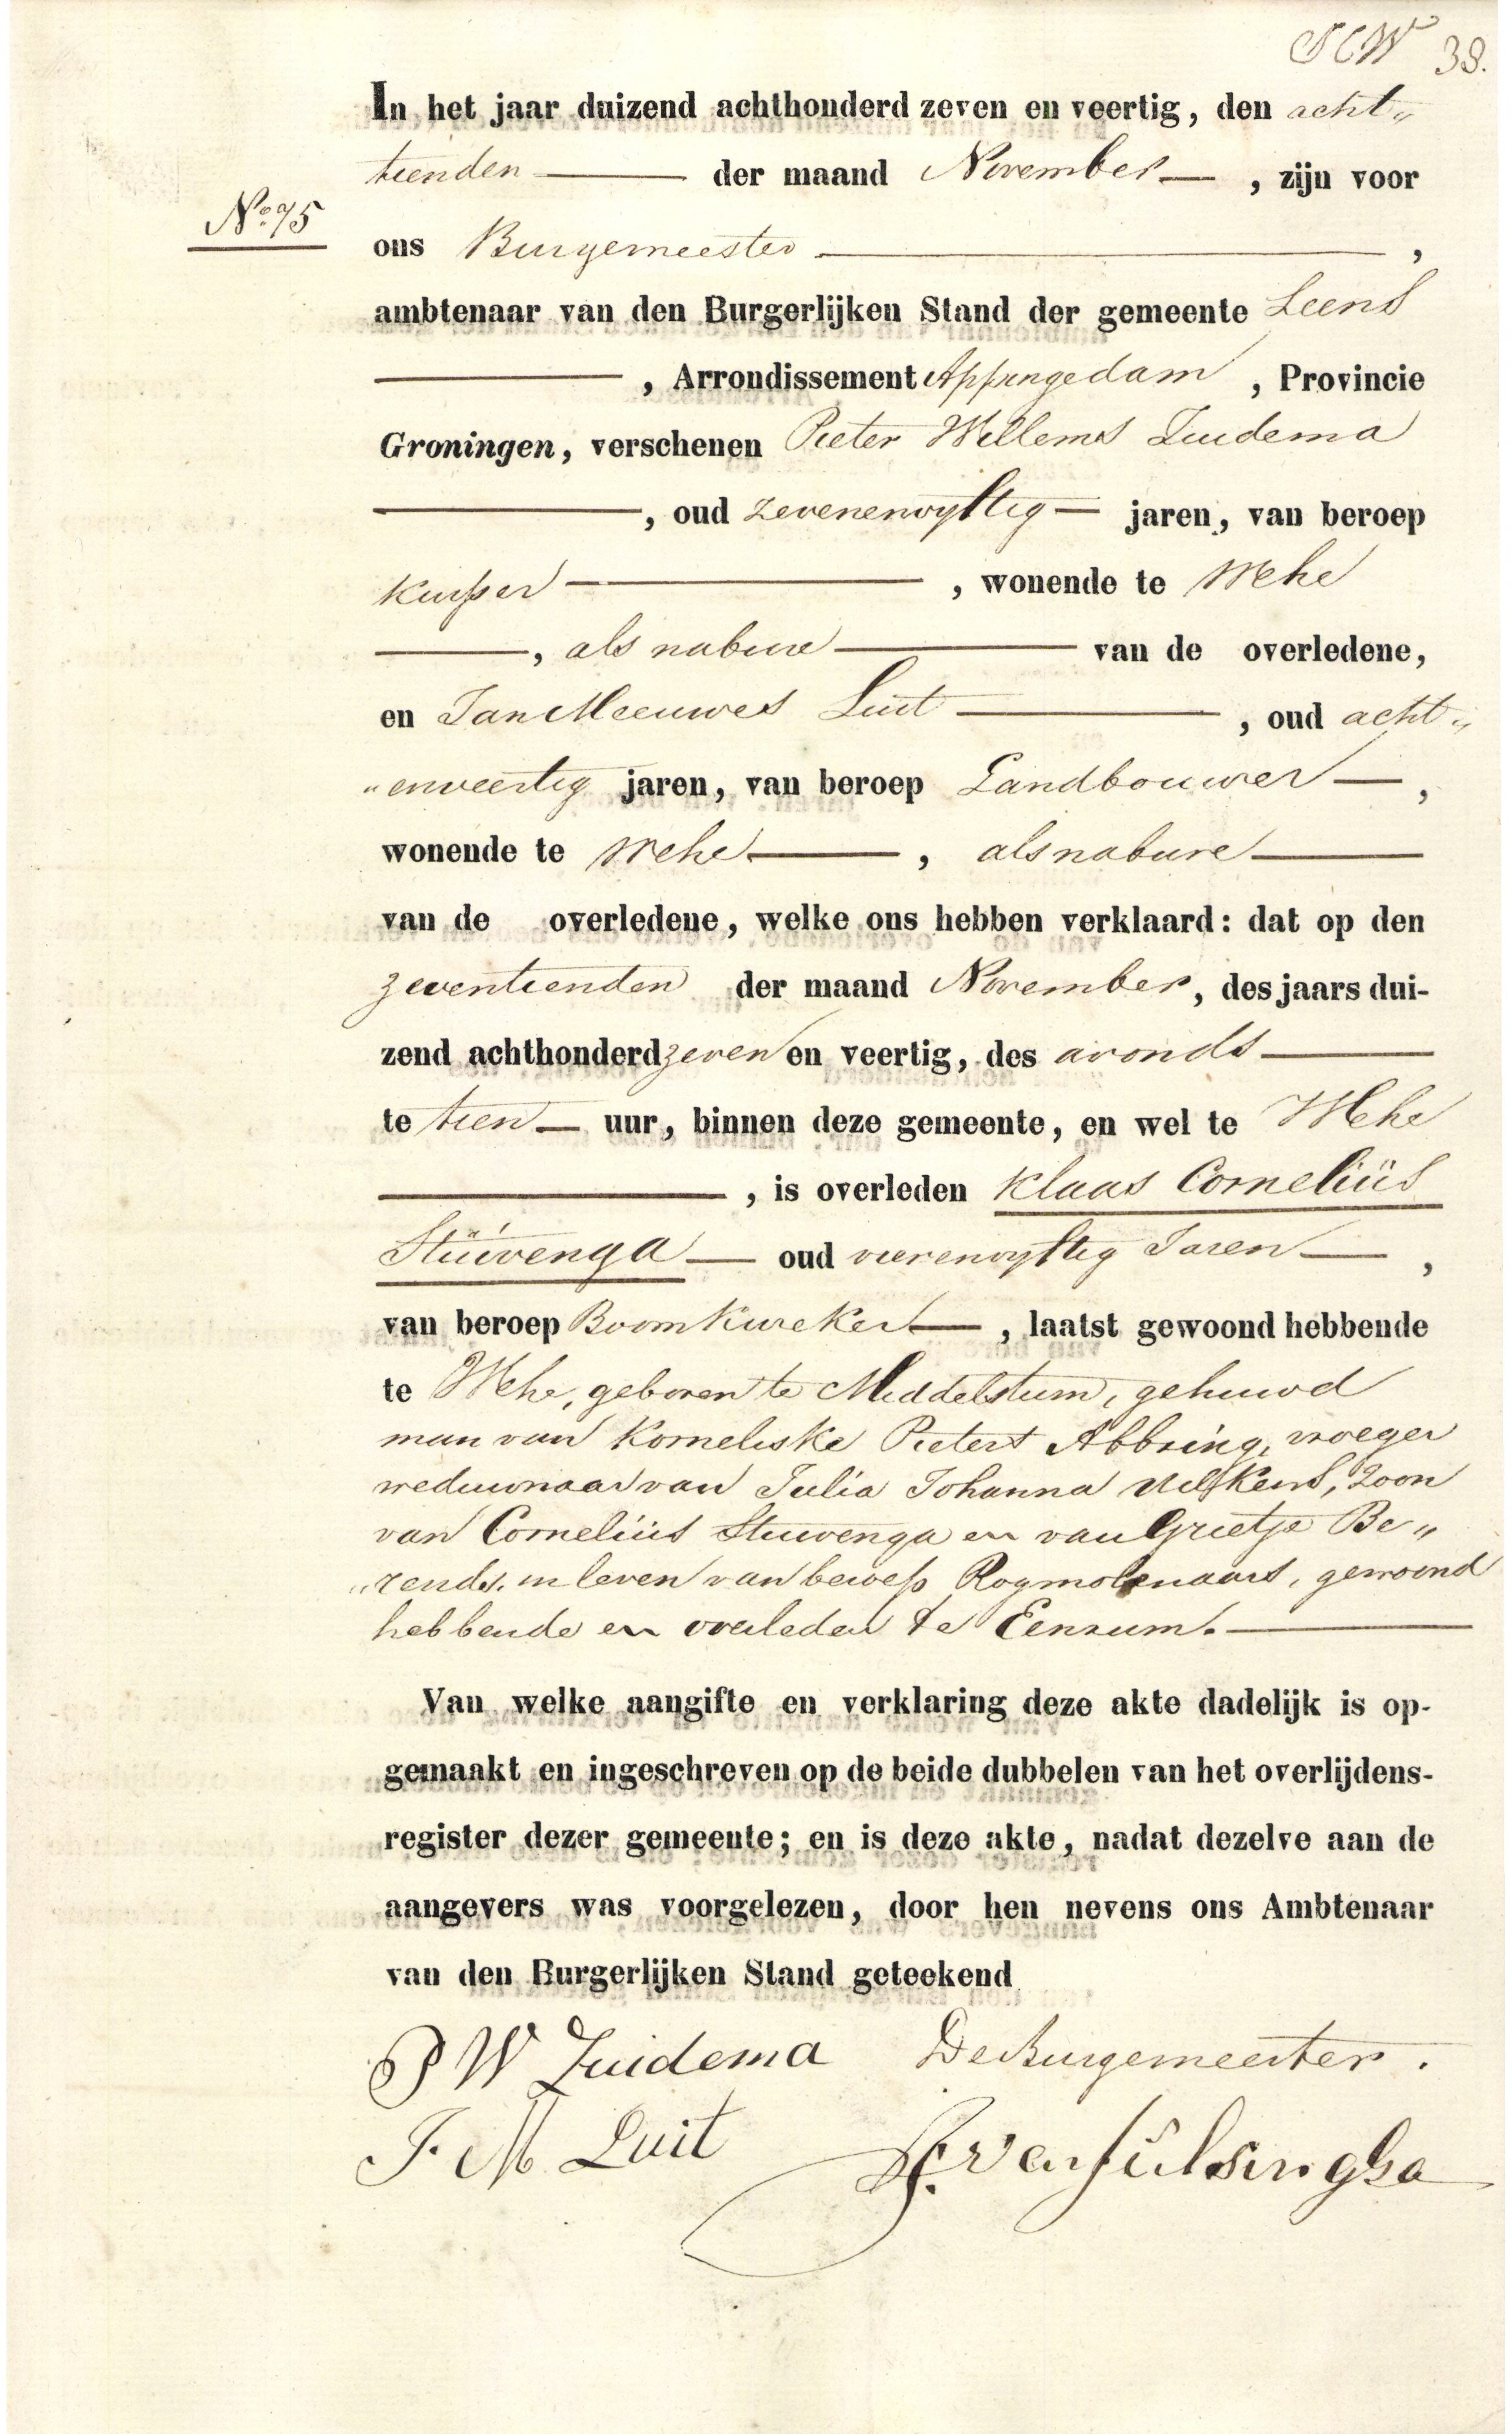 SCW 38.
In het jaar duizend achthonderd zeven en veertig, den acht„
tienden — der maand November —, zijn voor
No. 75
ons Burgemeester —,
ambtenaar van den Burgerlijken Stand der gemeente Leens
—, Arrondissement Appingedam, Provincie
Groningen, verschenen Pieter Willems Zuidema
—, oud zevenenvyftig — jaren, van beroep
Kuiper —, wonende te Wehe
—, als nabuur — van de overledene,
en Jan Meeuwes Luit —, oud acht„
„enveertig jaren, van beroep Landbouwer —,
wonende te Wehe —, als nabuur —
van de overledene, welke ons hebben verklaard: dat op den
zeventienden der maand November, des jaars dui-
zend achthonderd zeven en veertig, des avonds —
te tien — uur, binnen deze gemeente, en wel te Wehe
—, is overleden Klaas Corneliüs
Stüivenga — oud vierenvyftig Jaren —,
van beroep Boomkweker —, laatst gewoond hebbende
te Wehe, geboren te Middelstum, gehuwd
man van Korneliske Pieters Abbring, vroeger
weduwnaar van Julia Johanna Uilkens, Zoon
van Corneliüs Stuivenga en van Grietje Be„
„rends, in leven van beroep Rogmolenaars, gewoond
hebbende en overleden te Eenrum. —
Van welke aangifte en verklaring deze akte dadelijk is op-
gemaakt en ingeschreven op de beide dubbelen van het overlijdens-
register dezer gemeente; en is deze akte, nadat dezelve aan de
aangevers was voorgelezen, door hen nevens ons Ambtenaar
van den Burgerlijken Stand geteekend
P W Zuidema De Burgemeester.
J. M Luit